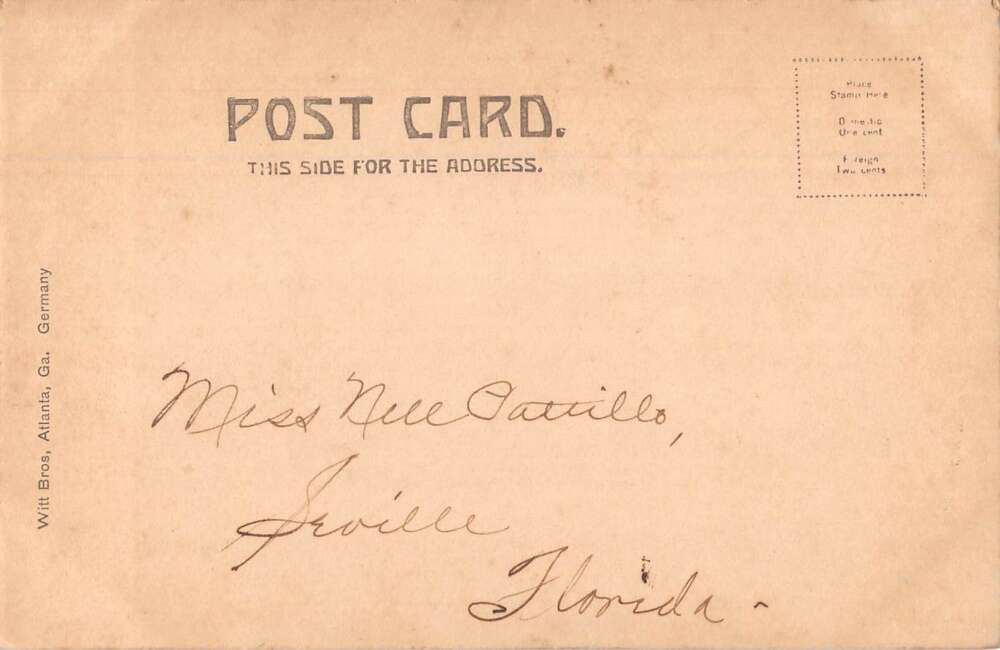 POST CARD.
THIS SIDE FOR THE ADDRESS.
Place
Stamp Here
Domestic
One cent
Foreign
Two cents
Witt Bros, Atlanta, Ga. Germany
Miss Nell Pattillo,
Seville
Florida -